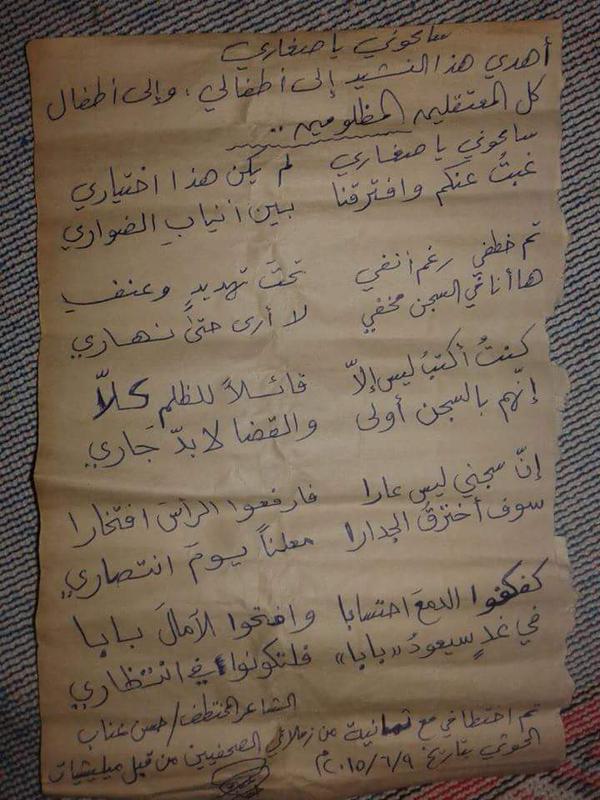 سامحوني يا صغاري
أهدي هذا النشيد إلى أطفالي، وإلى أطفال
كل المعتقلين المظلومين ..
سامحوني يا صغاري لم يكن هذا اختياري
غبتُ عنكم وافترقنا بين أنيابِ الضواري
تم خطفي رغم أنفي تحتَ تهديدٍ وعنفِ
ها أنا في السجن مخفي لا أرى حتىٰ نهاري
كنتُ أكتبُ ليس إلّا قائلاً للظلم كلاّ
إنّهم بالسجن أولى والقضا لا بدّ جَاري
إنّ سجني ليس عارا فارفعوا الرأسَ افتخارا
سوف أخترقُ الجدارا معلناً يومَ انتصاري
كفكفوا الدمعَ احتسابا وافتحوا الآمالَ بابا
في غدٍ سيعودُ «بابا» فلتكونوا في انتظاري
الشاعر المختطف/ حسن عناب
تم اختطافي مع ثمانية من زملائي الصحفيين من قبل ميليشيات
الحوثي بتاريخ ٢٠١٥/٦/٩م